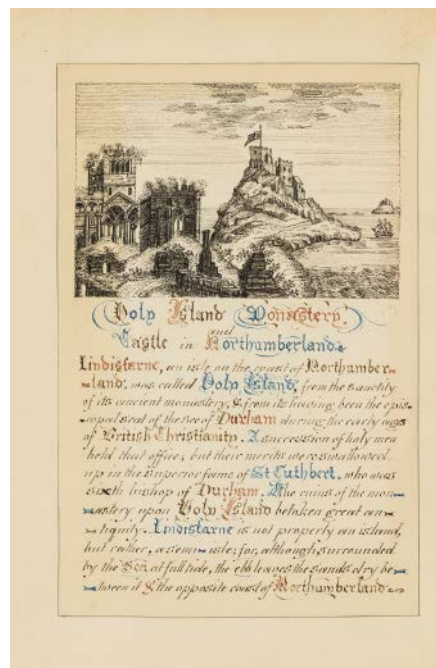 Holy Island Monastery
and
Castle in Northumberland.
Lindisfarne, an isle on the coast of Northumber-
land, was called Holy Island, from the sanctity
of its ancient monastery, & from its having been the epis-
copal seat of the see of Durham during the early ages
of British Christianity. A succession of holy men
held that office, but their merits were swallowed
up in the superior fame of St Cuthbert, who was
sixth bishop of Durham. The ruins of the mon-
astery upon Holy Island betoken great an-
tiquity. Lindisfarne is not properly an island,
but rather, a semi-isle; for, although surrounded
by the Sea at full tide, the ebb leaves the sands dry be-
tween it & the opposite coast of Northumberland